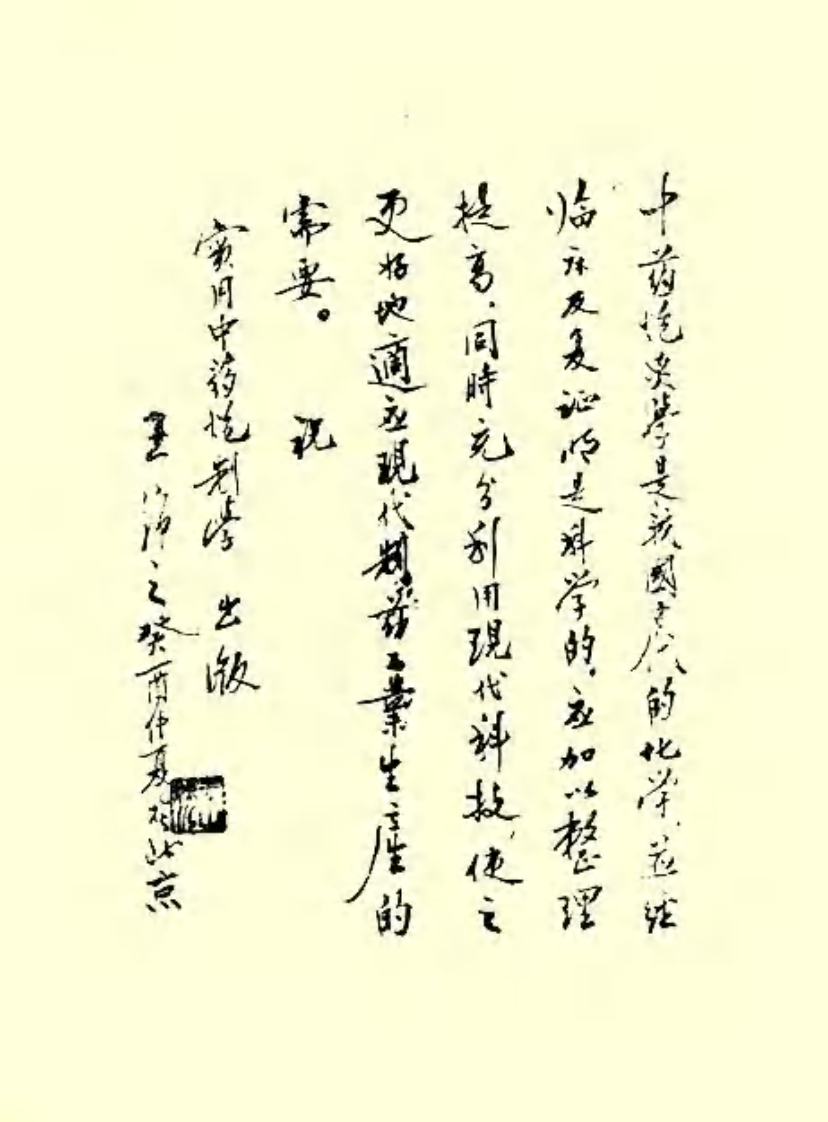 中药炮炙學是我國古代的化学,並经
临床反复证明是科学的。应加以整理
提高,同時充分利用現代科技,使之
更好地適应現代制药工業生產的
需要。 祝
實用中药炮制學 出版
王 之 癸酉仲夏於北京